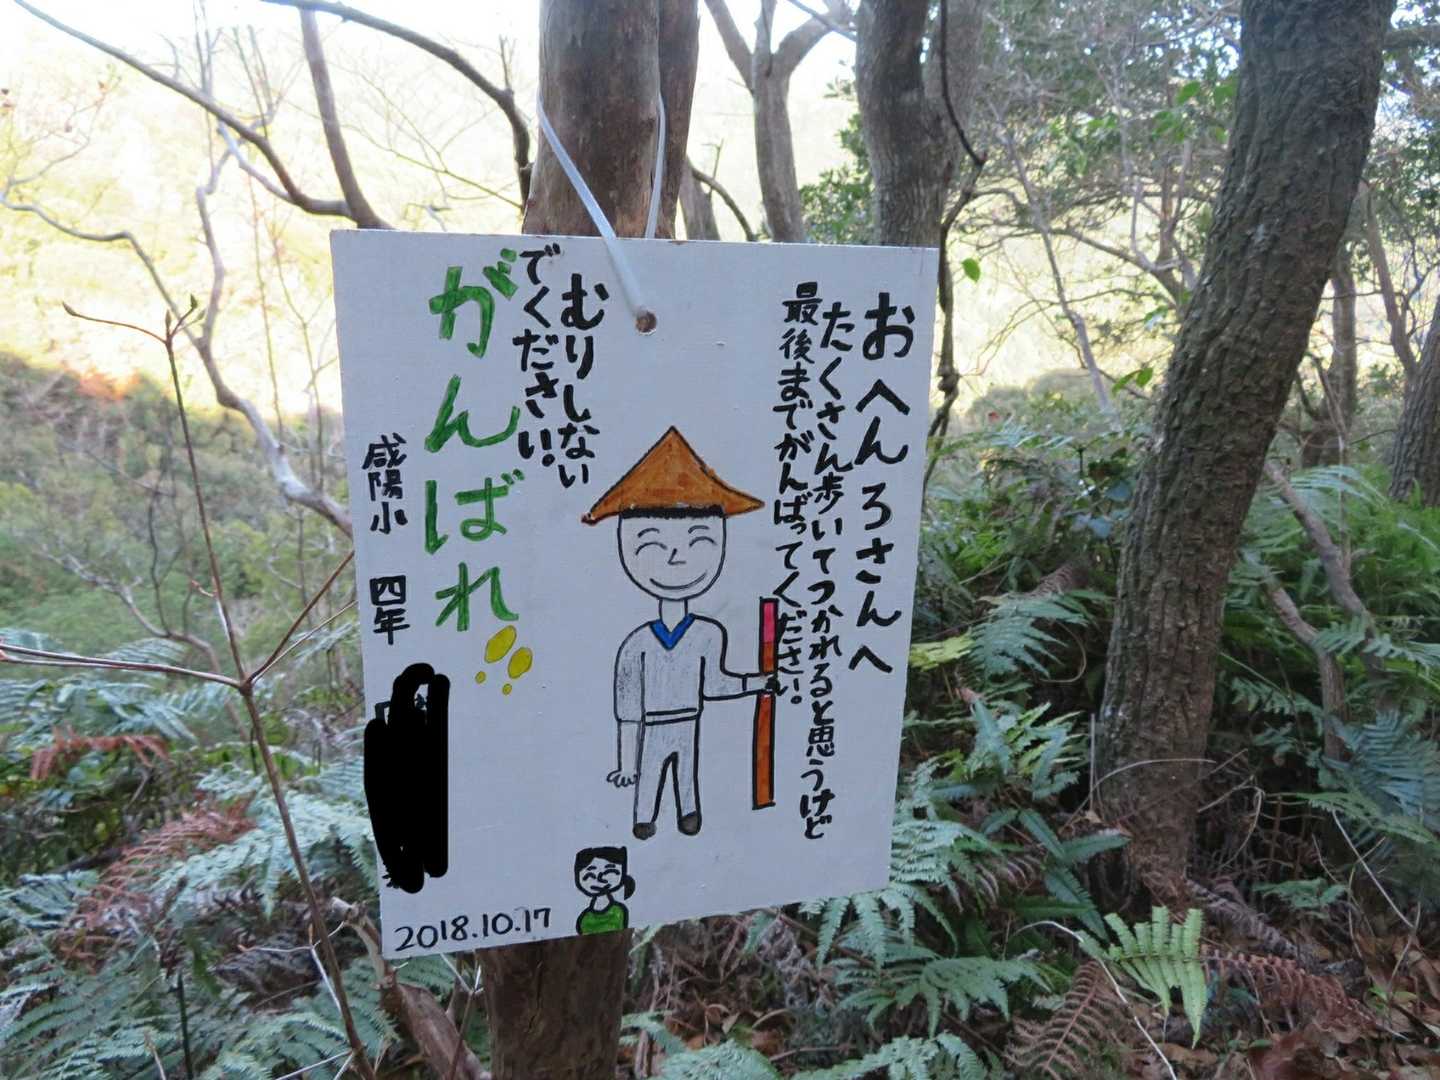 おへんろさんへ
たくさん歩いてつかれると思うけど
最後までがんばってください。
むりしない
でください。
がんばれ
咸陽小 四年
2018.10.17